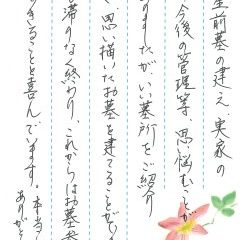 生前墓の建え、実家の
今後の管理等、思い悩むことが
ありましたがいい墓所をご紹介
、思い描いたお墓を建てることがで
滞りなく終わり、これからはお墓参
できることと喜んでいます。本当
ありがと